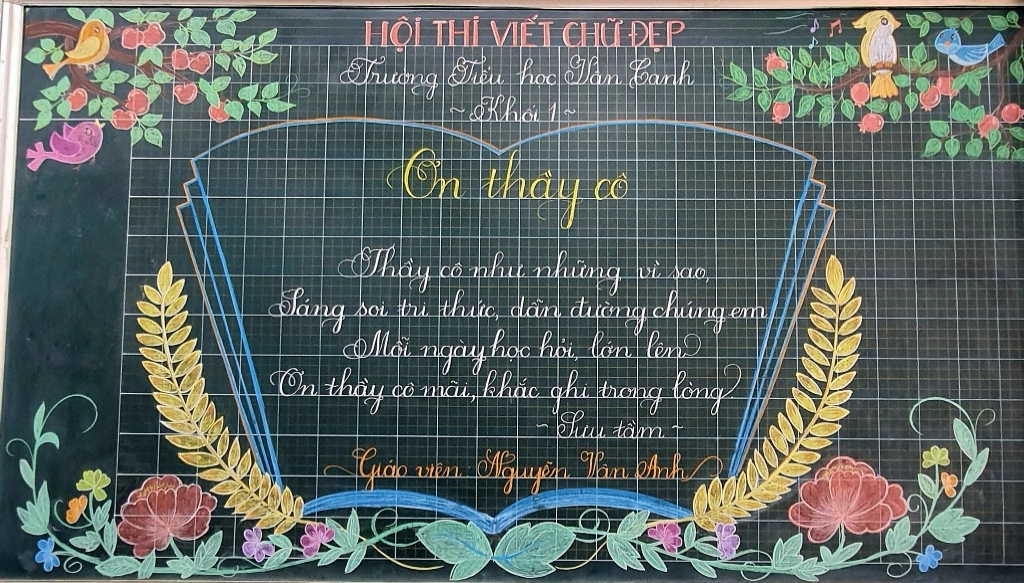 HỘI THI VIẾT CHỮ ĐẸP
Trường Tiểu học Vân Canh
~ Khối 1 ~
Ơn thầy cô
Thầy cô như những vì sao,
Sáng soi tri thức, dẫn đường chúng em
Mỗi ngày học hỏi, lớn lên
Ơn thầy cô mãi, khắc ghi trong lòng
~ Sưu tầm ~
Giáo viên: Nguyễn Vân Anh